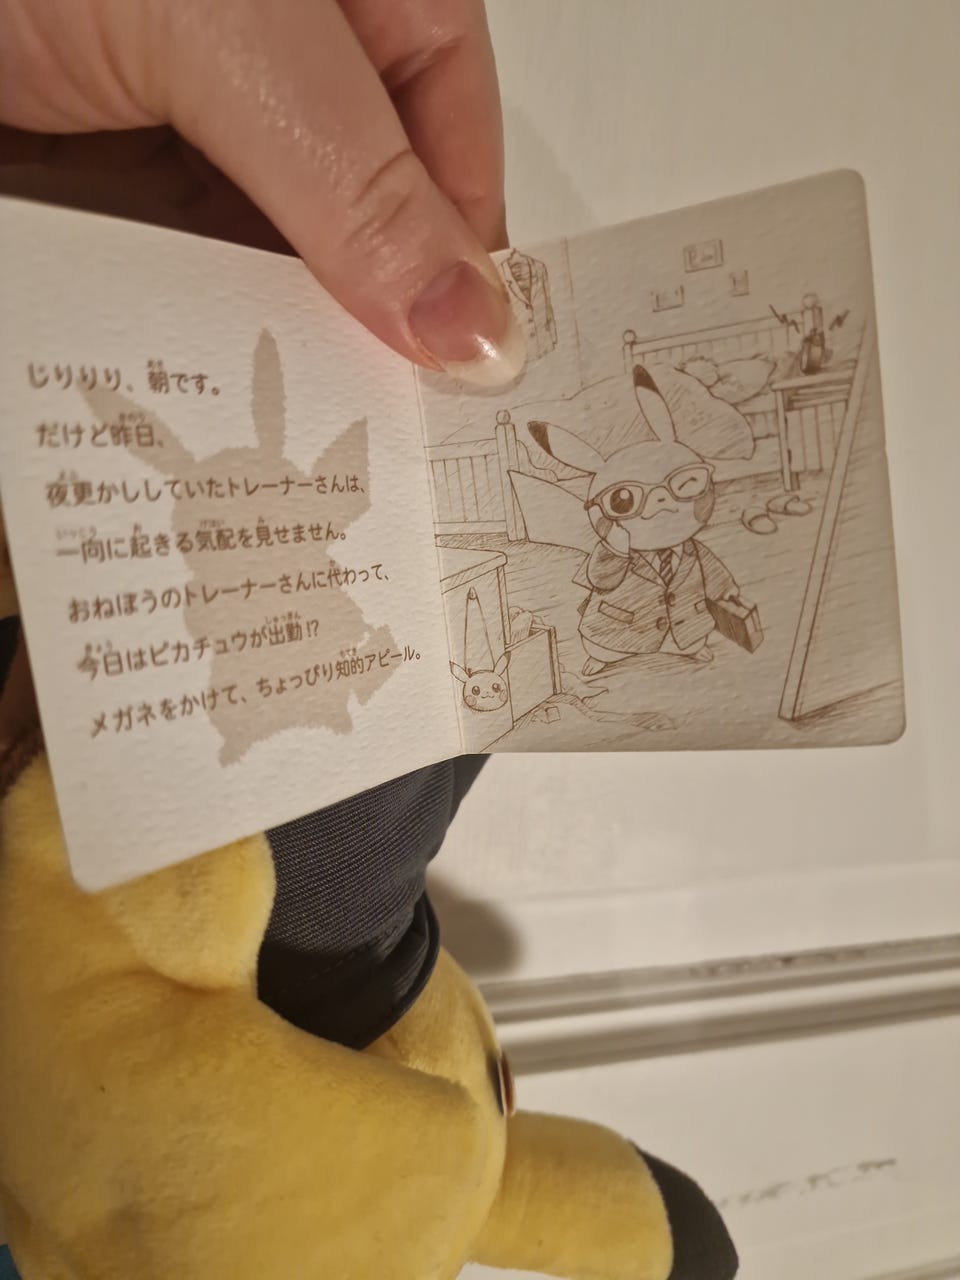 じりりり、朝です。
だけど昨日、
夜更かししていたトレーナーさんは、
一向に起きる気配を見せません。
おねぼうのトレーナーさんに代わって、
今日はピカチュウが出勤!?
メガネをかけて、ちょっぴり知的アピール。